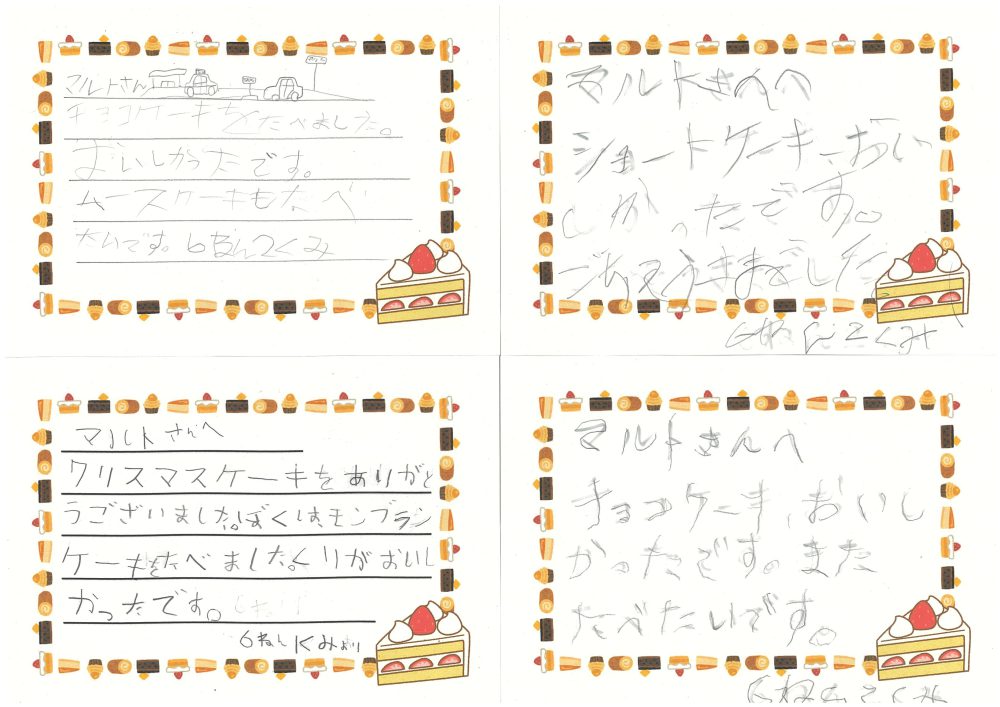 マルトさん
チョコケーキをたべました。
おいしかったです。
ムースケーキもたべ
たいです。6ねん2くみ
マルトさんへ
ショートケーキ、おい
しかったです。
ごちそうさまでした
6ねん2くみ
マルトさんへ
クリスマスケーキをありがと
うございました。ぼくはモンブラン
ケーキをたべました。くりがおいし
かったです。
6ねん1くみより
マルトさんへ
チョコケーキ、おいし
かったです。また
たべたいです。
6ねん2くみ